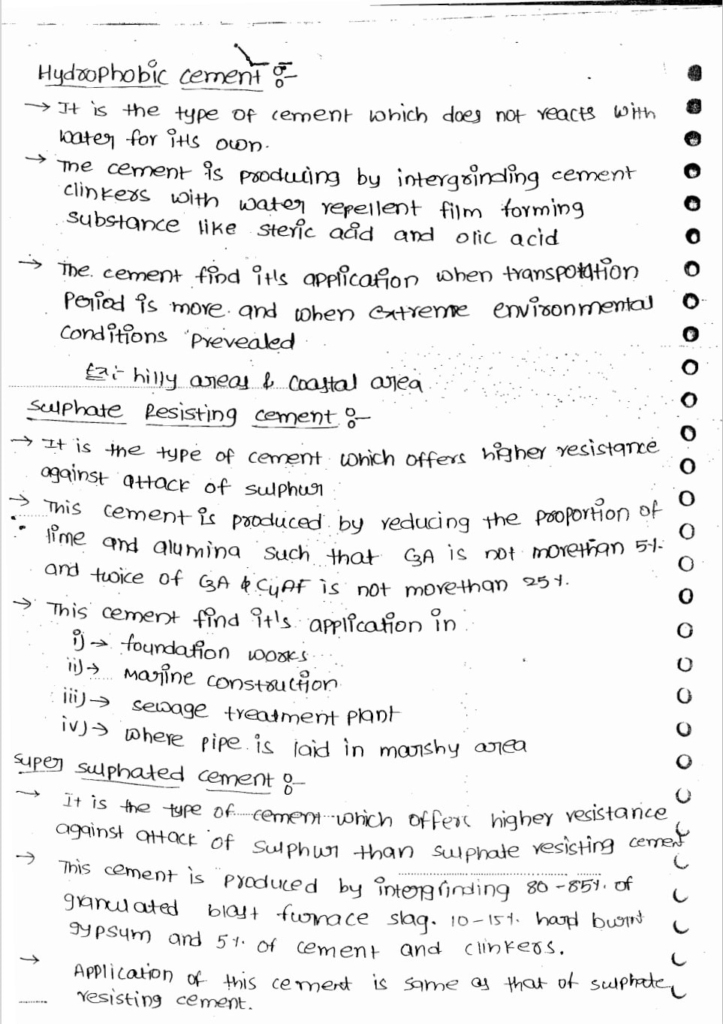 Hydrophobic cement :-
→ It is the type of cement which does not reacts with
water for it's own.
→ The cement is producing by intergrinding cement
clinkers with water repellent film forming
substance like steric acid and olic acid
→ The cement find it's application when transpotation
Period is more and when extreme environmental
conditions prevealed
Ex:- hilly areas & coastal area
Sulphate Resisting cement :-
→ It is the type of cement which offers higher resistance
against attack of sulphur
→ This cement is produced by reducing the proportion of
lime and alumina such that C3A is not morethan 5%
and twice of C3A & C4AF is not morethan 25%.
→ This cement find it's application in
i) → foundation works
ii) → Marine construction
iii) → sewage treatment plant
iv) → where pipe is laid in marshy area
Super sulphated cement :-
→ It is the type of cement which offers higher resistance
against attack of sulphur than sulphate resisting cement
→ This cement is produced by intergrinding 80-85% of
granulated blast furnace slag. 10-15% hard burnt
gypsum and 5% of cement and clinkers.
→ Application of this cement is same as that of sulphate
resisting cement.